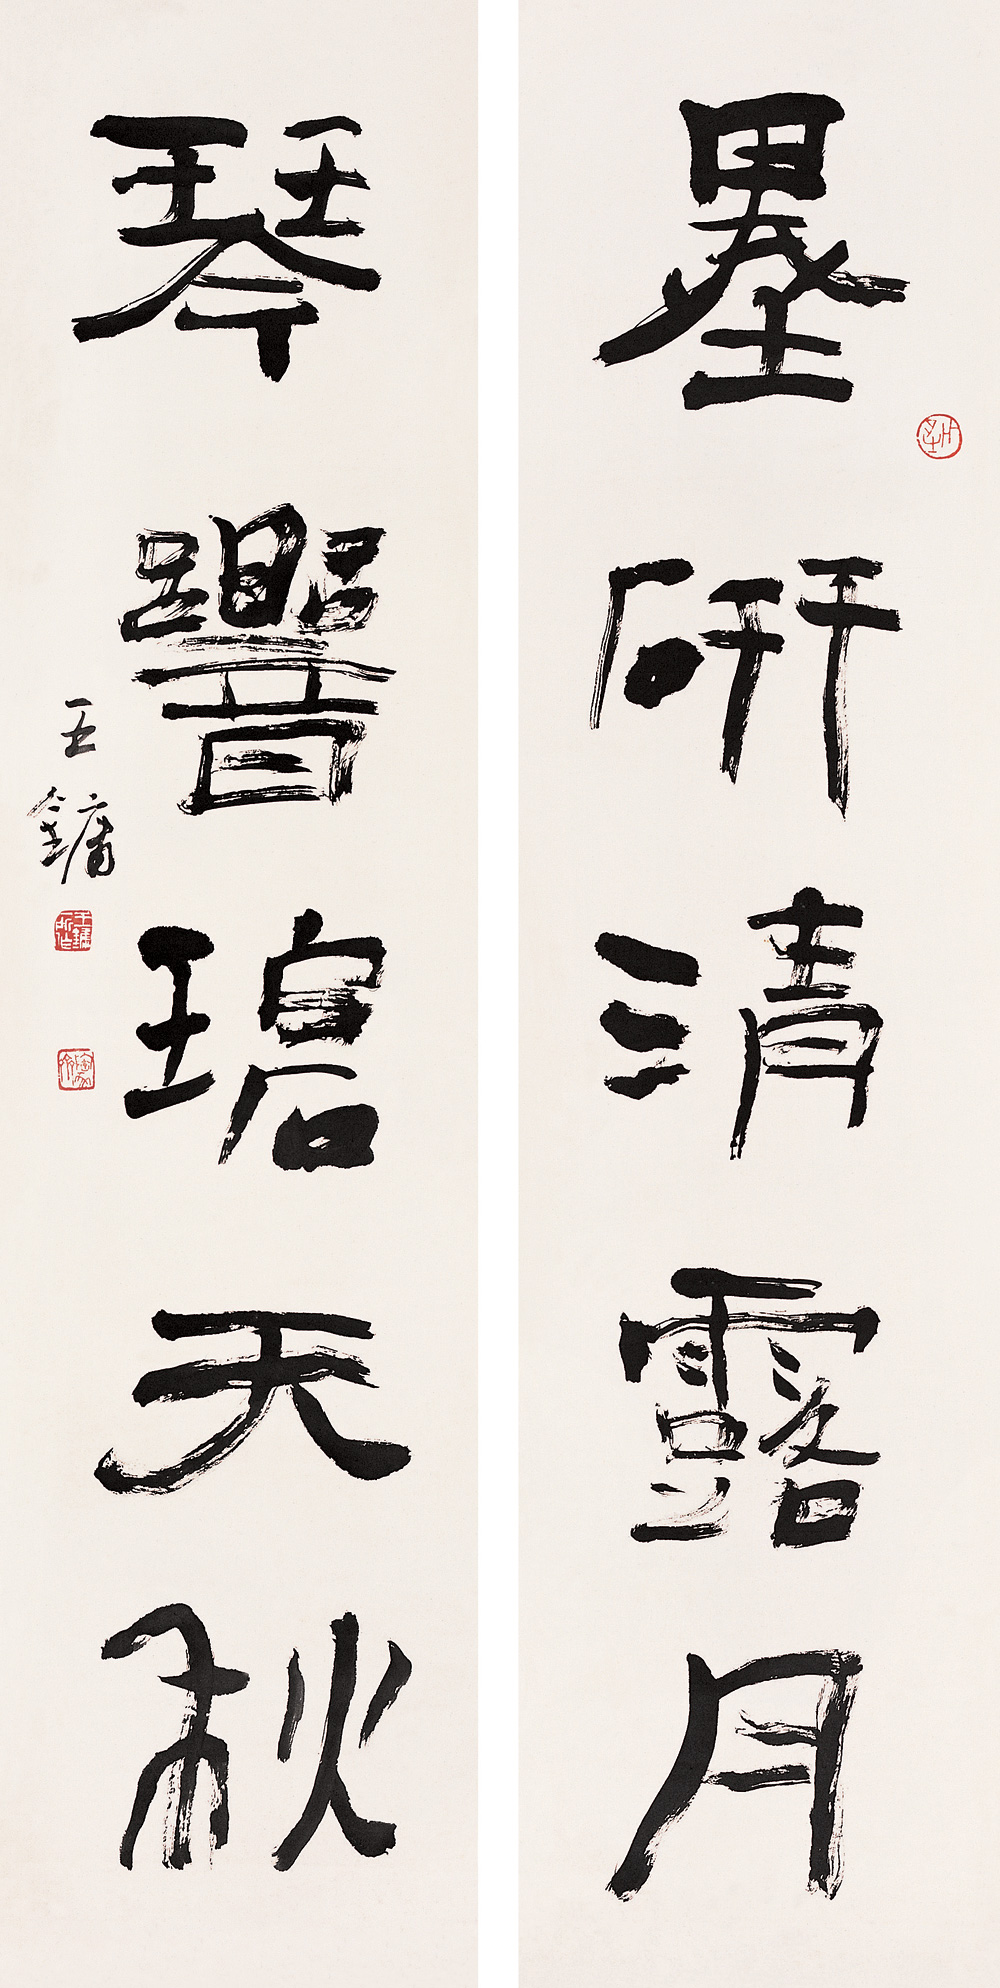 墨研清露月
琴響碧天秋
王鏞
王鏞所作